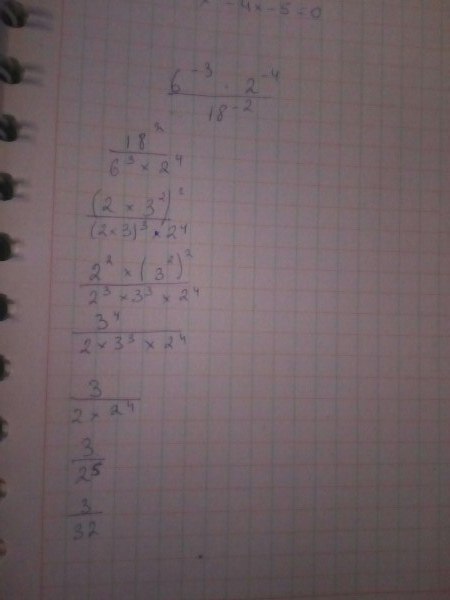 x² - 4x - 5 = 0
6⁻³ · 2⁻⁴
18⁻²
18²
6³ × 2⁴
(2 × 3²)²
(2×3)³ × 2⁴
2² × (3²)²
2³ × 3³ × 2⁴
3⁴
2 × 3³ × 2⁴
3
2 × 2⁴
3
2⁵
3
32